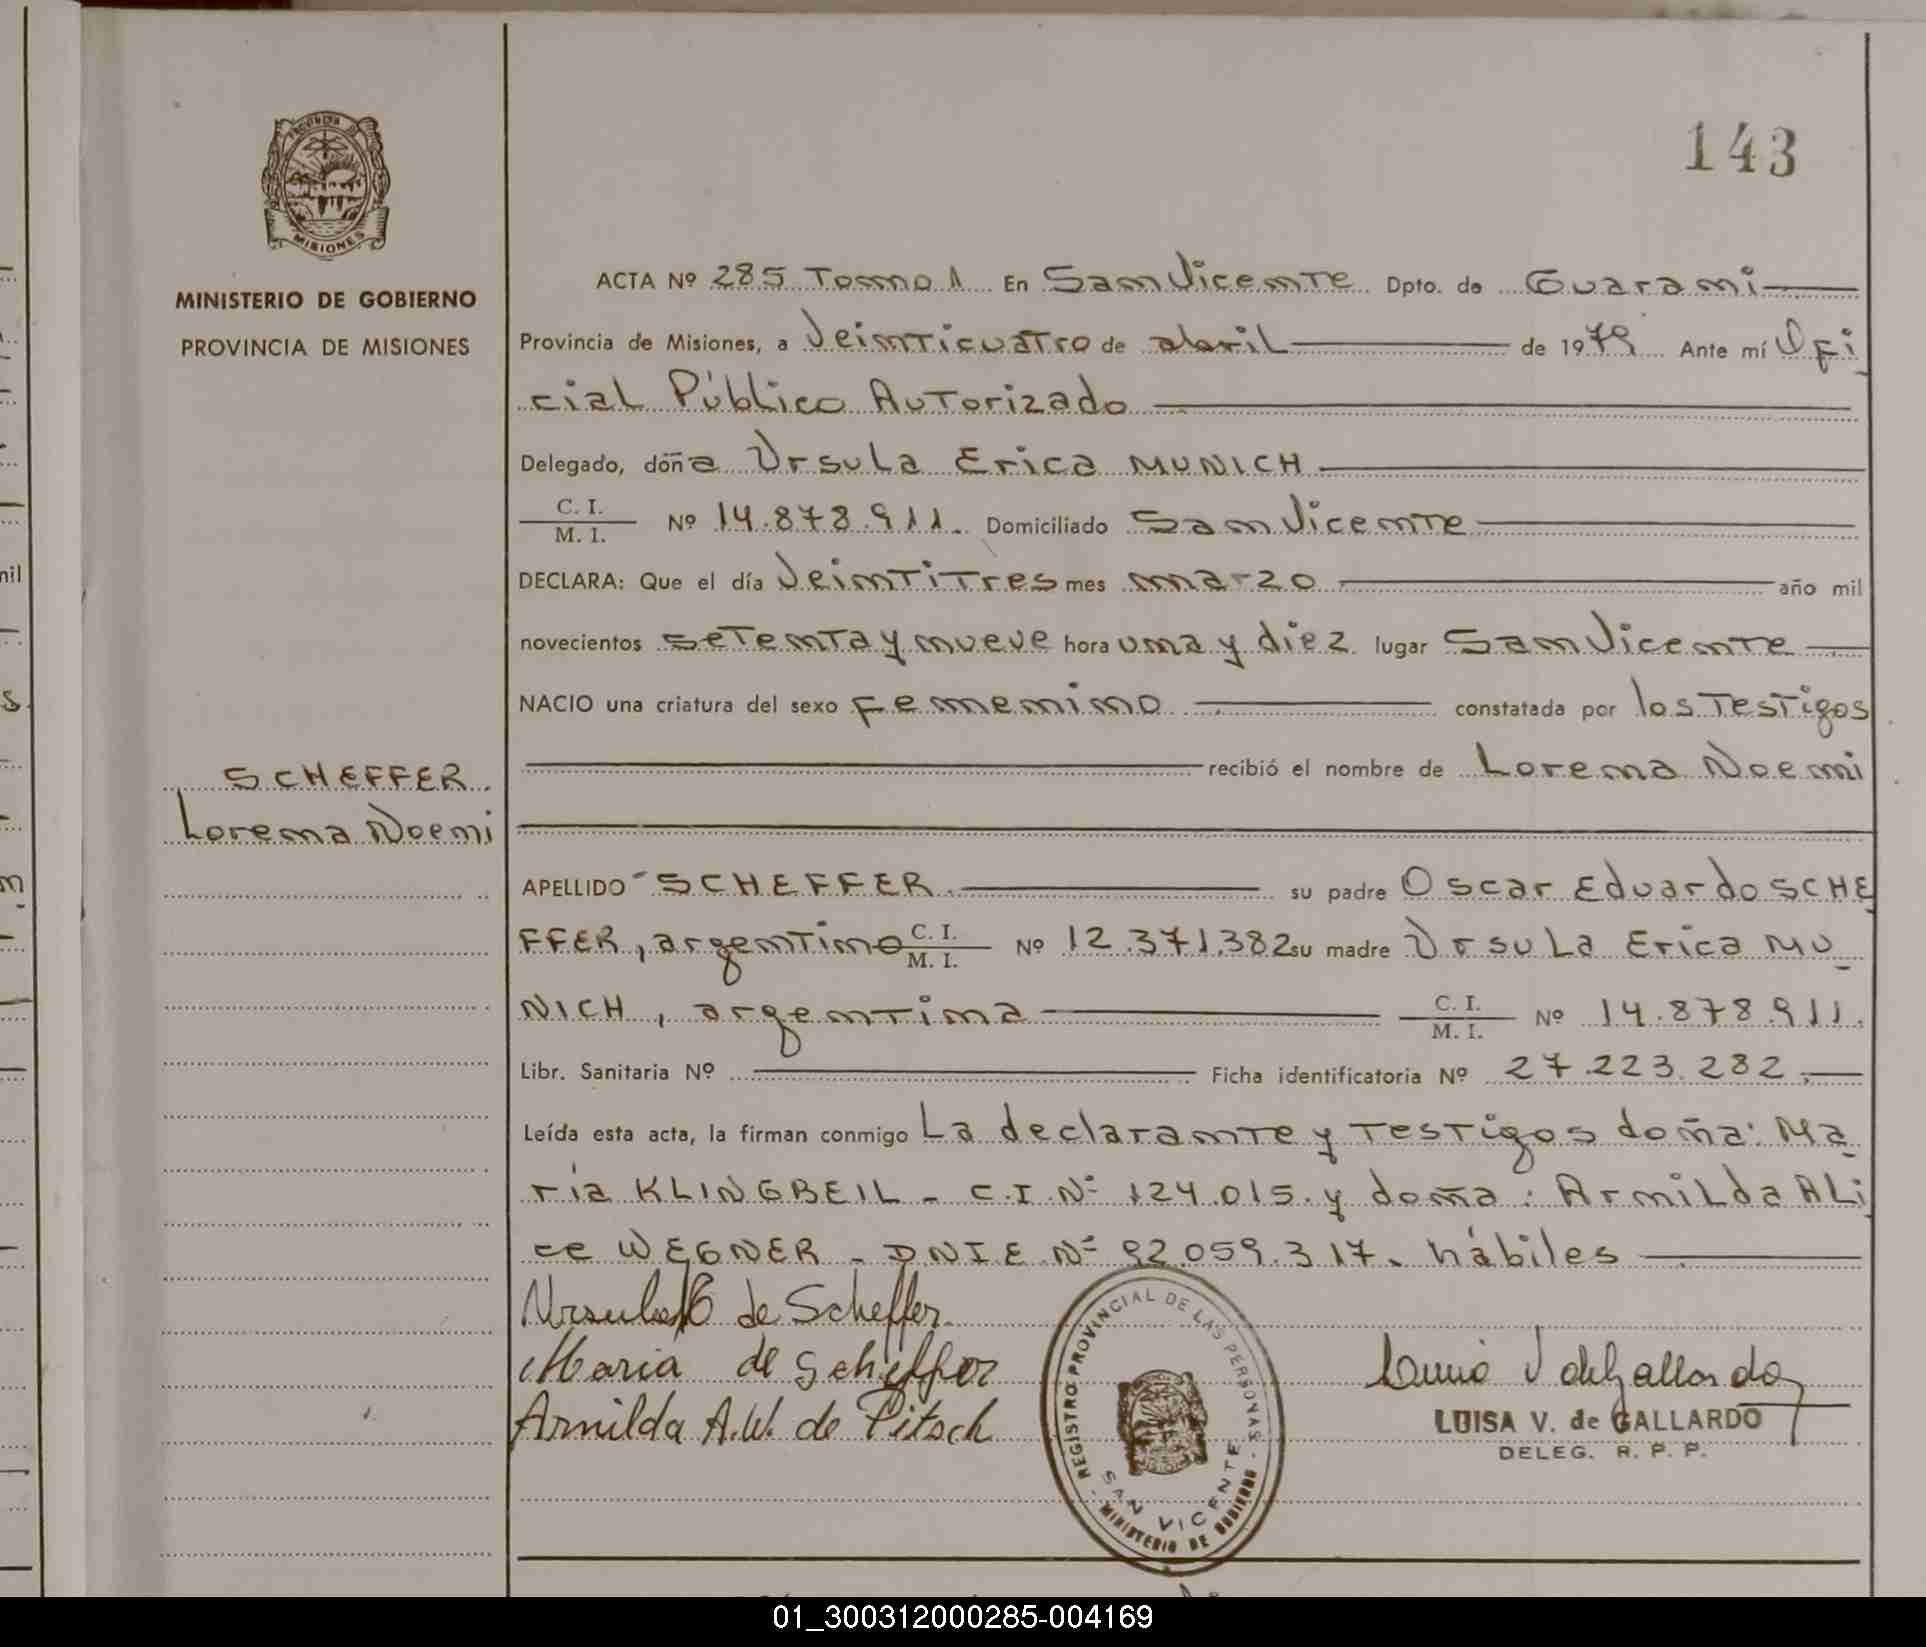 PROVINCIA DE
MISIONES
MINISTERIO DE GOBIERNO
PROVINCIA DE MISIONES
SCHEFFER.
Lorena Noemi
143
ACTA Nº 285 Tomo 1 En San Vicente Dpto. de Guarani
Provincia de Misiones, a Veinticuatro de abril de 1979 Ante mí Ofi
cial Público Autorizado
Delegado, doña Ursula Erica MUNICH
C. I.
M. I. Nº 14.878.911. Domiciliado San Vicente
DECLARA: Que el día Veintitres mes marzo año mil
novecientos setenta y nueve hora una y diez lugar San Vicente
NACIO una criatura del sexo Femenino constatada por los Testigos
recibió el nombre de Lorena Noemi
APELLIDO SCHEFFER. su padre Oscar Eduardo SCHE
FFER, argentino C. I. M. I. Nº 12.371.382 su madre Ursula Erica MU
NICH, argentina C. I. M. I. Nº 14.878.911.
Libr. Sanitaria Nº Ficha identificatoria Nº 27.223.282.
Leída esta acta, la firman conmigo La declarante y Testigos doña: Ma
ria KLINGBEIL - C.I. Nº 124.015. y doña: Armilda ALi
ce WEGNER - DNIE Nº 92.059.317. hábiles
de Scheffer.
Maria de Scheffer
Armilda A.W. de Pitsch
REGISTRO PROVINCIAL DE LAS PERSONAS
SAN VICENTE
MINISTERIO DE GOBIERNO
LUISA V. de GALLARDO
DELEG. R. P. P.
01_300312000285-004169